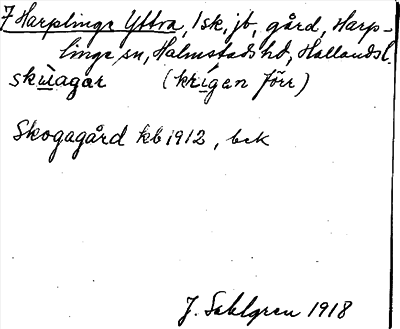 7 Harplinge Yttra, 1 sk, jb, gård, Harp-
linge sn, Halmstads hd, Hallands l.
skùagar (krígen förr)
Skogagård kb 1912, bek
J. Sahlgren 1918